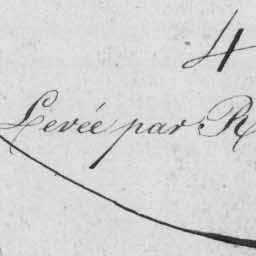 4
Levée par R